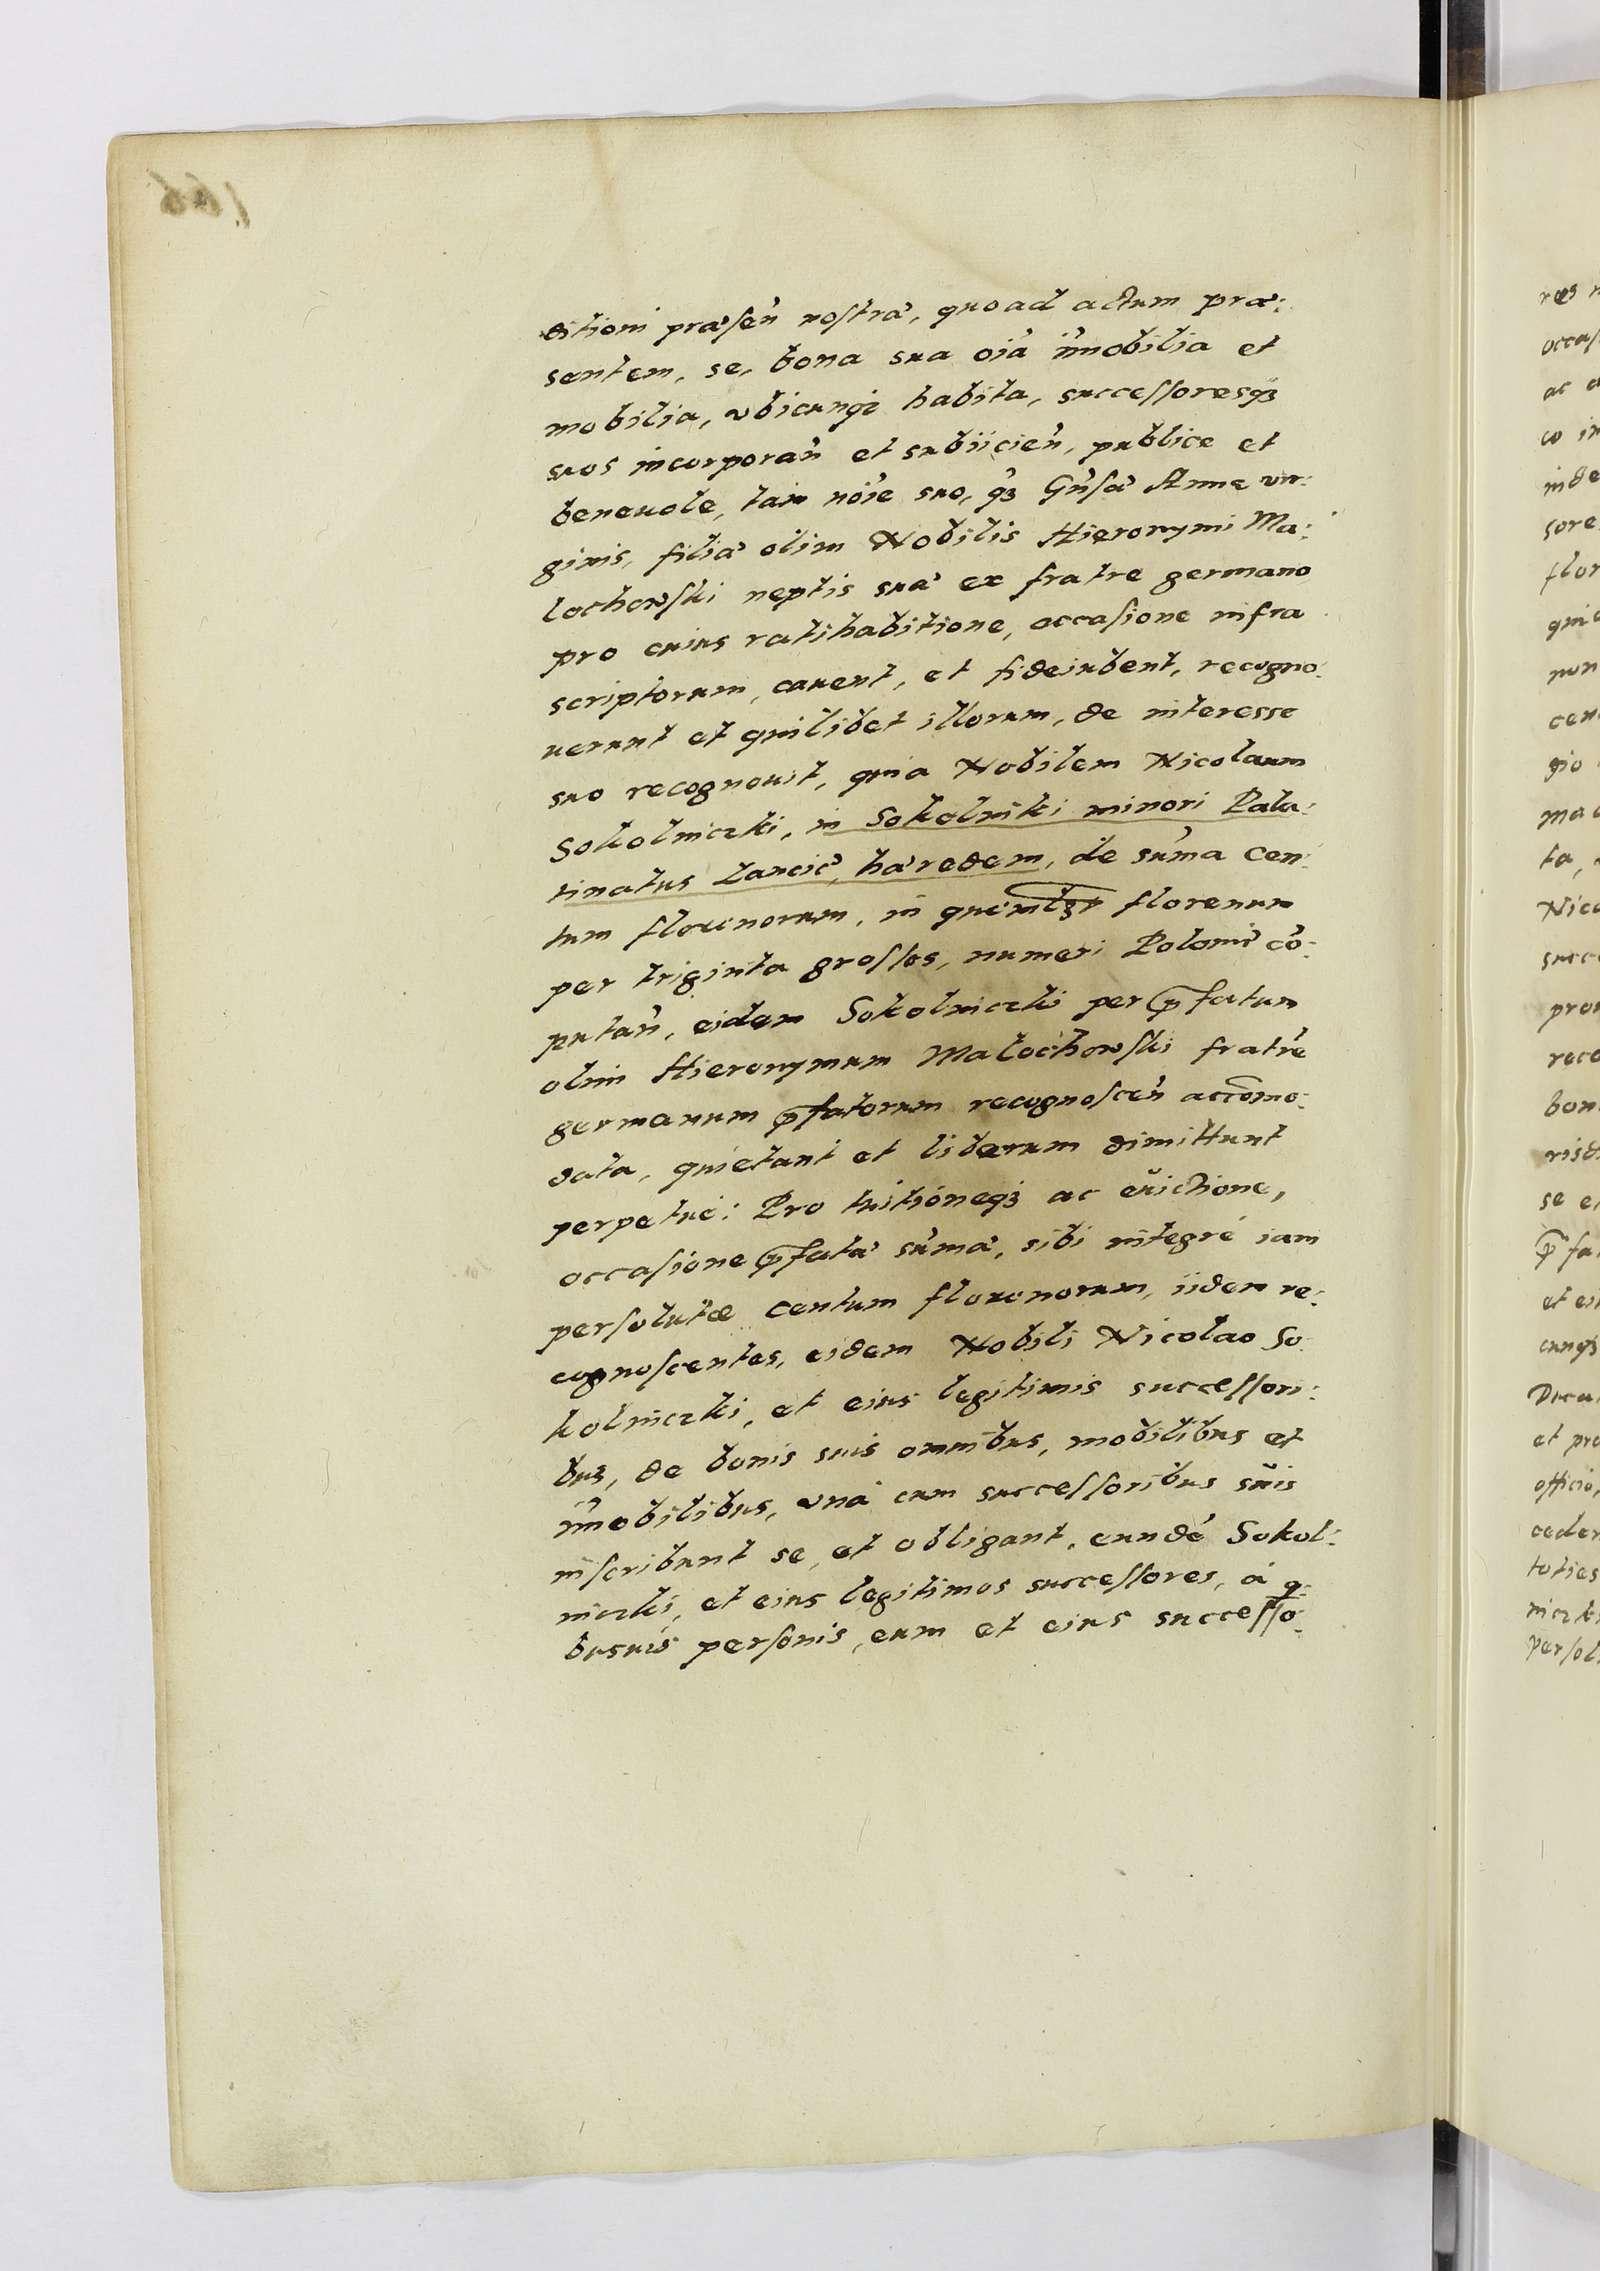 ditioni præsen̄ nostræ, quoad actum præ:
sentem, se, bona sua oīa īmobilia et
mobilia, vbicunqȝ habita, successoresqȝ
suos incorporan̄ et subiicien̄, publice et
beneuole, tam nōie suo, qȝ Gn̄sæ Annæ vir:
ginis, filiæ olim Nobilis Hieronymi Ma:
lochowski neptis suæ ex fratre germano
pro cuius ratihabitione, occasione infra
scriptorum, cauent, et fideiubent, recogno:
uerunt et quilibet illorum, de interesse
suo recognouit, quia Nobilem Nicolaum
Sokolniczki, in Sokolniki minori Pala:
tinatus Lancic̄, hæredem, de sum̄a Cen:
tum florenorum, in quemlȝt florenum
per triginta grossos, numeri Polonic̄ cō:
putan̄, eidem Sokolniczki per p̄fatum
olim Hieronymum Malochowski fratrē
germanum p̄fatorum recognoscen̄ accom̄o:
data, quietant et liberum dimittunt
perpetuè: Pro tuitioneqȝ ac euictione,
occasione p̄fatæ sum̄æ, sibi integrè iam
persolutæ centum florenorum, iidem re:
cognoscentes, eidem Nobili Nicolao So:
kolniczki, et eius legitimis successori:
bus, de bonis suis omnibus, mobilibus et
īmobilibus, vnà cum successoribus suis
inscribunt se, et obligant, eundē Sokol:
niczki, et eius legitimos successores, à q̄:
busuis personis, eum et eius successo: